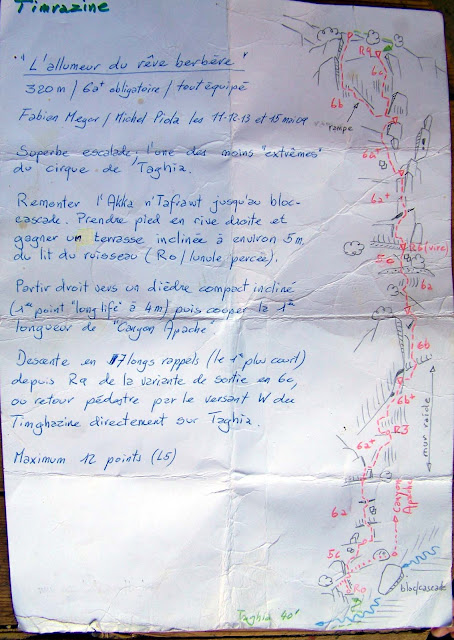 Timrazine
"L'allumeur du rêve berbère"
320 m / 6a+ obligatoire / tout équipé
Fabian Meyer / Michel Piola les 11-12-13 et 15 mai 09
Superbe escalade, l'une des moins "extrêmes"
du cirque de Taghia.
Remonter l'Akka n'Tafrawt jusqu'au bloc-
cascade. Prendre pied en rive droite et
gagner un terrasse inclinée à environ 5m
du lit du ruisseau (R0 / lunule percée).
Partir droit vers un dièdre compact incliné
(1er point "long life" à 4m) puis couper la 1ère
longueur de "Canyon Apache"
Descente en 7 longs rappels (le 1er plus court)
depuis R9 de la variante de sortie en 6c,
ou retour pédestre par le versant W du
Timghazine directement sur Taghia.
Maximum 12 points (L5)
R9
6c
6b
rampe
6a+
6a+
R6 (vire)
5c
6a
6b
6b+
R3
mur raide
6a+
6a
Canyon
Apache
5c
R0
bloc/cascade
Taghia 40'